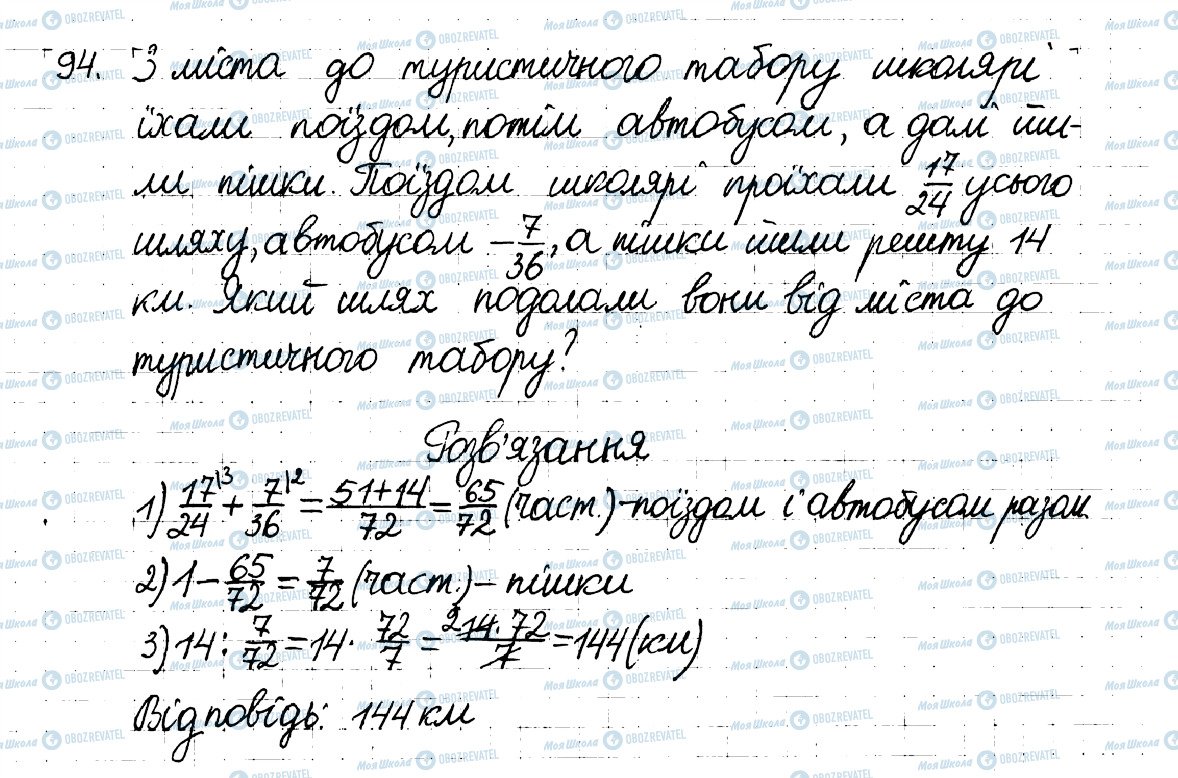 94. З міста до туристичного табору школярі
їхали поїздом, потім автобусом, а далі йш-
ли пішки. Поїздом школярі проїхали 17/24 усього
шляху, автобусом – 7/36, а пішки йшли решту 14
км. Який шлях подолали вони від міста до
туристичного табору?
Розв'язання
1) 17/24 |3 + 7/36 |2 = (51+14)/72 = 65/72 (част.) – поїздом і автобусом разом.
2) 1 – 65/72 = 7/72 (част.) – пішки
3) 14 : 7/72 = 14 · 72/7 = 2 14·72/7 = 144 (км)
Відповідь: 144 км